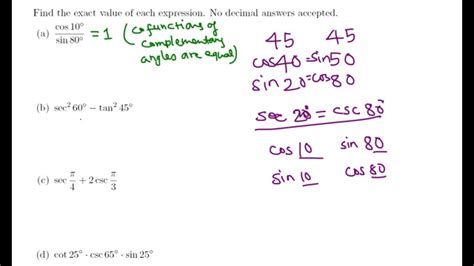 Find the exact value of each expression. No decimal answers accepted.
(a) cos 10° / sin 80° = 1 (cofunctions of complementary angles are equal)
45 45
cos40 = sin50
sin 20 = cos80
sec 20° = csc 80°
cos 10 sin 80
sin 10 cos 80
(b) sec² 60° − tan² 45°
(c) sec π/4 + 2 csc π/3
(d) cot 25° · csc 65° · sin 25°